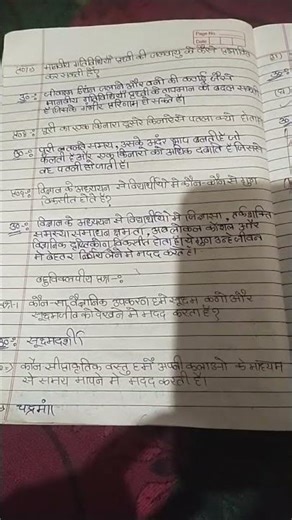 मानवीय गतिविधियाँ पृथ्वी की जलवायु को कैसे प्रभावित
कर सकती हैं?
उ०ः जीवाश्म ईंधन जलाने और वनों की कटाई जैसी
मानवीय गतिविधियाँ पृथ्वी के तापमान को बदल सकती
हैं जिसके गंभीर परिणाम हो सकते हैं।
पूरी का एक किनारा दूसरे किनारे से पतला क्यों होता
उ०ः पूरी तलते समय, उसके अंदर भाप बनती है जो
फैलती है और एक किनारे को अधिक दबाती है जिससे
वह पतली हो जाती है।
विज्ञान के अध्ययन से विद्यार्थियो में कौन-कौन से गुण
विकसित होते हैं?
उ०ः विज्ञान के अध्ययन से विद्यार्थियों में जिज्ञासा, तर्कशक्ति
समस्या-समाधान क्षमता, अवलोकन कौशल और
वैज्ञानिक दृष्टिकोण विकसित होता है। ये गुण उन्हें जीवन
में बेहतर निर्णय लेने में मदद करते हैं।
बहुविकल्पीय प्रश्न-:
कौन सा वैज्ञानिक उपकरण हमें सूक्ष्म कणों और
सूक्ष्मजीवों को देखने में मदद करता है?
उ०ः सूक्ष्मदर्शी
कौन सी प्राकृतिक वस्तु हमें अपनी कलाओं के माध्यम
से समय मापने में मदद करती है।
चंद्रमा॥